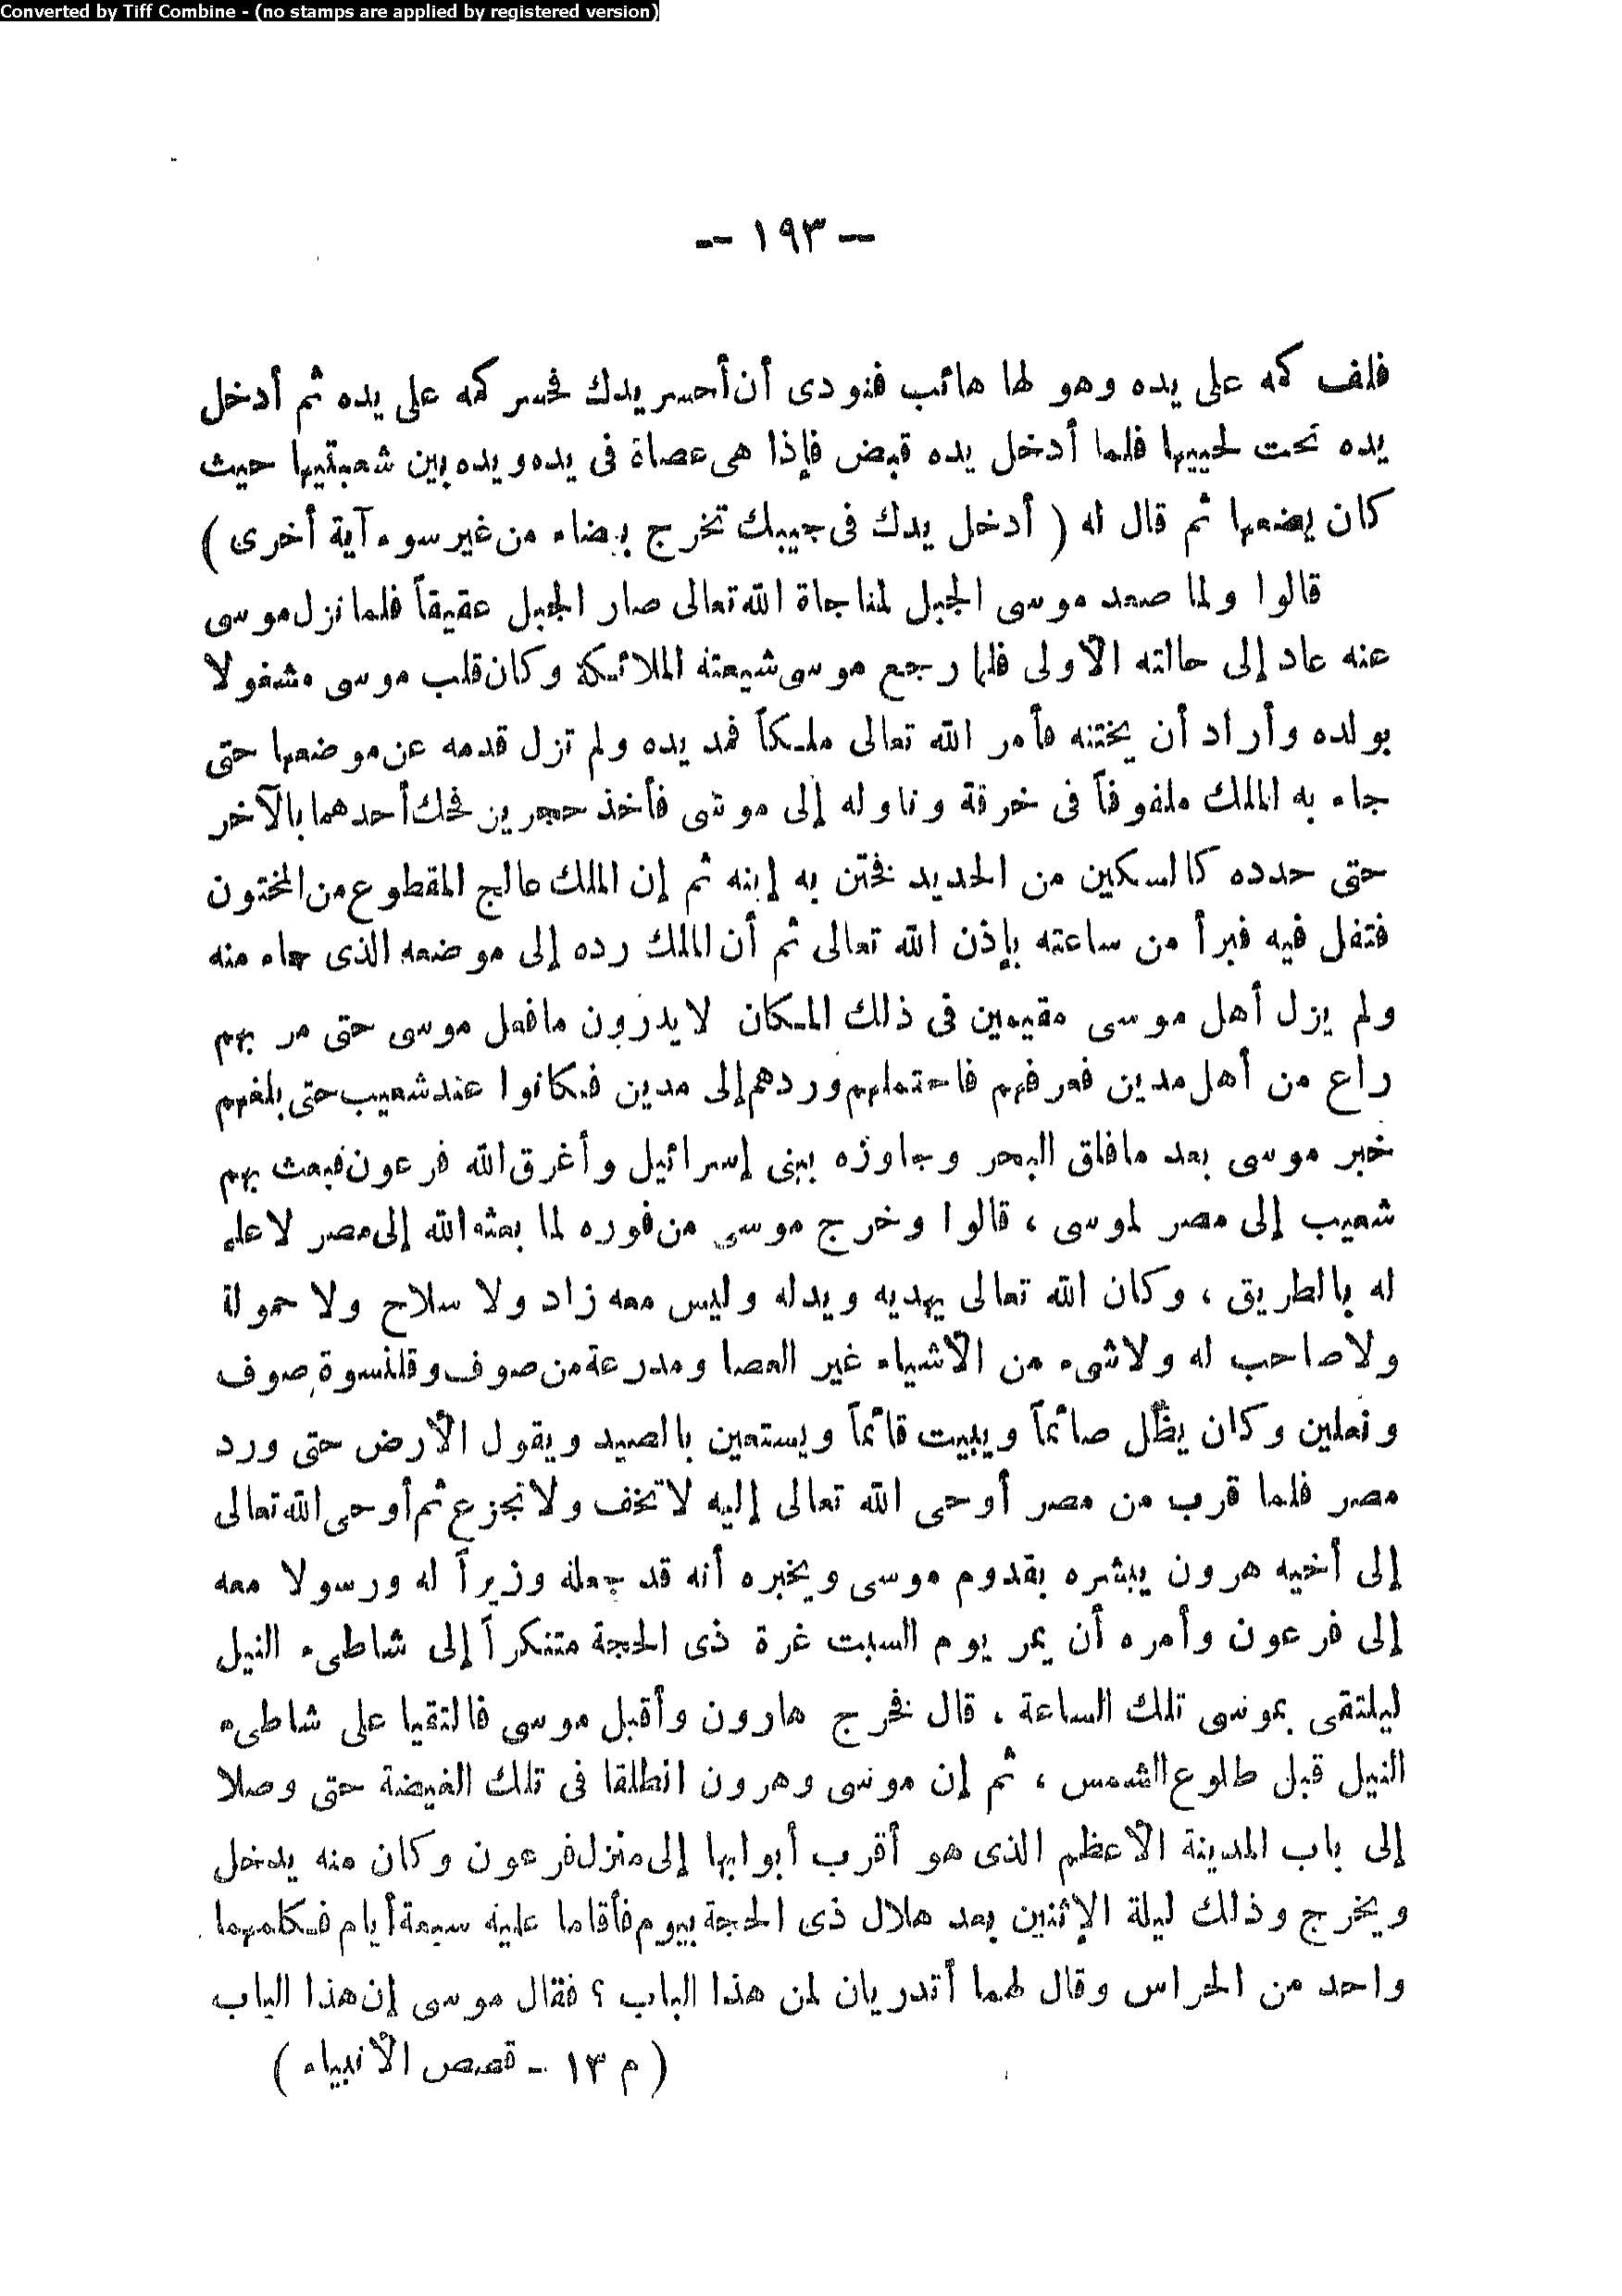 Converted by Tiff Combine - (no stamps are applied by registered version)
-- ١٩٣ --
فلف كمه على يده وهو لها هائب فنودى أن أحسر يدك فحسر كمه على يده ثم أدخل
يده تحت لحييها فلما أدخل يده قبض فإذا هى عصاة فى يده ويده بين شعبتيها حيث
كان يضعها ثم قال له ( أدخل يدك فى جيبك تخرج بيضاء من غير سوء آية أخرى )
قالوا ولما صعد موسى الجبل لمناجاة الله تعالى صار الجبل عقيقاً فلما نزل موسى
عنه عاد إلى حالته الأولى فلما رجع موسى شيعته الملائكة وكان قلب موسى مشغولا
بولده وأراد أن يختنه فأمر الله تعالى ملكاً فمد يده ولم تزل قدمه عن موضعها حتى
جاء به الملك ملفوفاً فى خرقة وناوله إلى موسى فأخذ حجرين فحك أحدهما بالآخر
حتى حدده كالسكين من الحديد فختن به إبنه ثم إن الملك عالج المقطوع من المختون
فتفل فيه فبرأ من ساعته بإذن الله تعالى ثم أن الملك رده إلى موضعه الذى جاء منه
ولم يزل أهل موسى مقيمين فى ذلك المكان لا يدرون ما فعل موسى حتى مر بهم
راع من أهل مدين فعرفهم فاحتملهم وردهم إلى مدين فكانوا عند شعيب حتى بلغهم
خبر موسى بعد ما فلق البحر وجاوزه ببنى إسرائيل وأغرق الله فرعون فبعث بهم
شعيب إلى مصر لموسى ، قالوا وخرج موسى من فوره لما بعثه الله إلى مصر لا علم
له بالطريق ، وكان الله تعالى يهديه ويدله وليس معه زاد ولا سلاح ولا حمولة
ولا صاحب له ولا شىء من الأشياء غير العصا ومدرعة من صوف وقلنسوة صوف
ونعلين وكان يظل صائماً ويبيت قائماً ويستعين بالصيد ويقول الأرض حتى ورد
مصر فلما قرب من مصر أوحى الله تعالى إليه لا تخف ولا تجزع ثم أوحى الله تعالى
إلى أخيه هرون يبشره بقدوم موسى ويخبره أنه قد جعله وزيراً له ورسولا معه
إلى فرعون وأمره أن يمر يوم السبت غرة ذى الحجة متنكراً إلى شاطىء النيل
ليلتقى بموسى تلك الساعة ، قال فخرج هارون وأقبل موسى فالتقيا على شاطىء
النيل قبل طلوع الشمس ، ثم إن موسى وهرون انطلقا فى تلك الغيضة حتى وصلا
إلى باب المدينة الأعظم الذى هو أقرب أبوابها إلى منزل فرعون وكان منه يدخل
ويخرج وذلك ليلة الإثنين بعد هلال ذى الحجة بيوم فأقاما عليه سبعة أيام فكلمهما
واحد من الحراس وقال لهما أتدريان لمن هذا الباب ؟ فقال موسى إن هذا الباب
( م ١٣ - قصص الأنبياء )